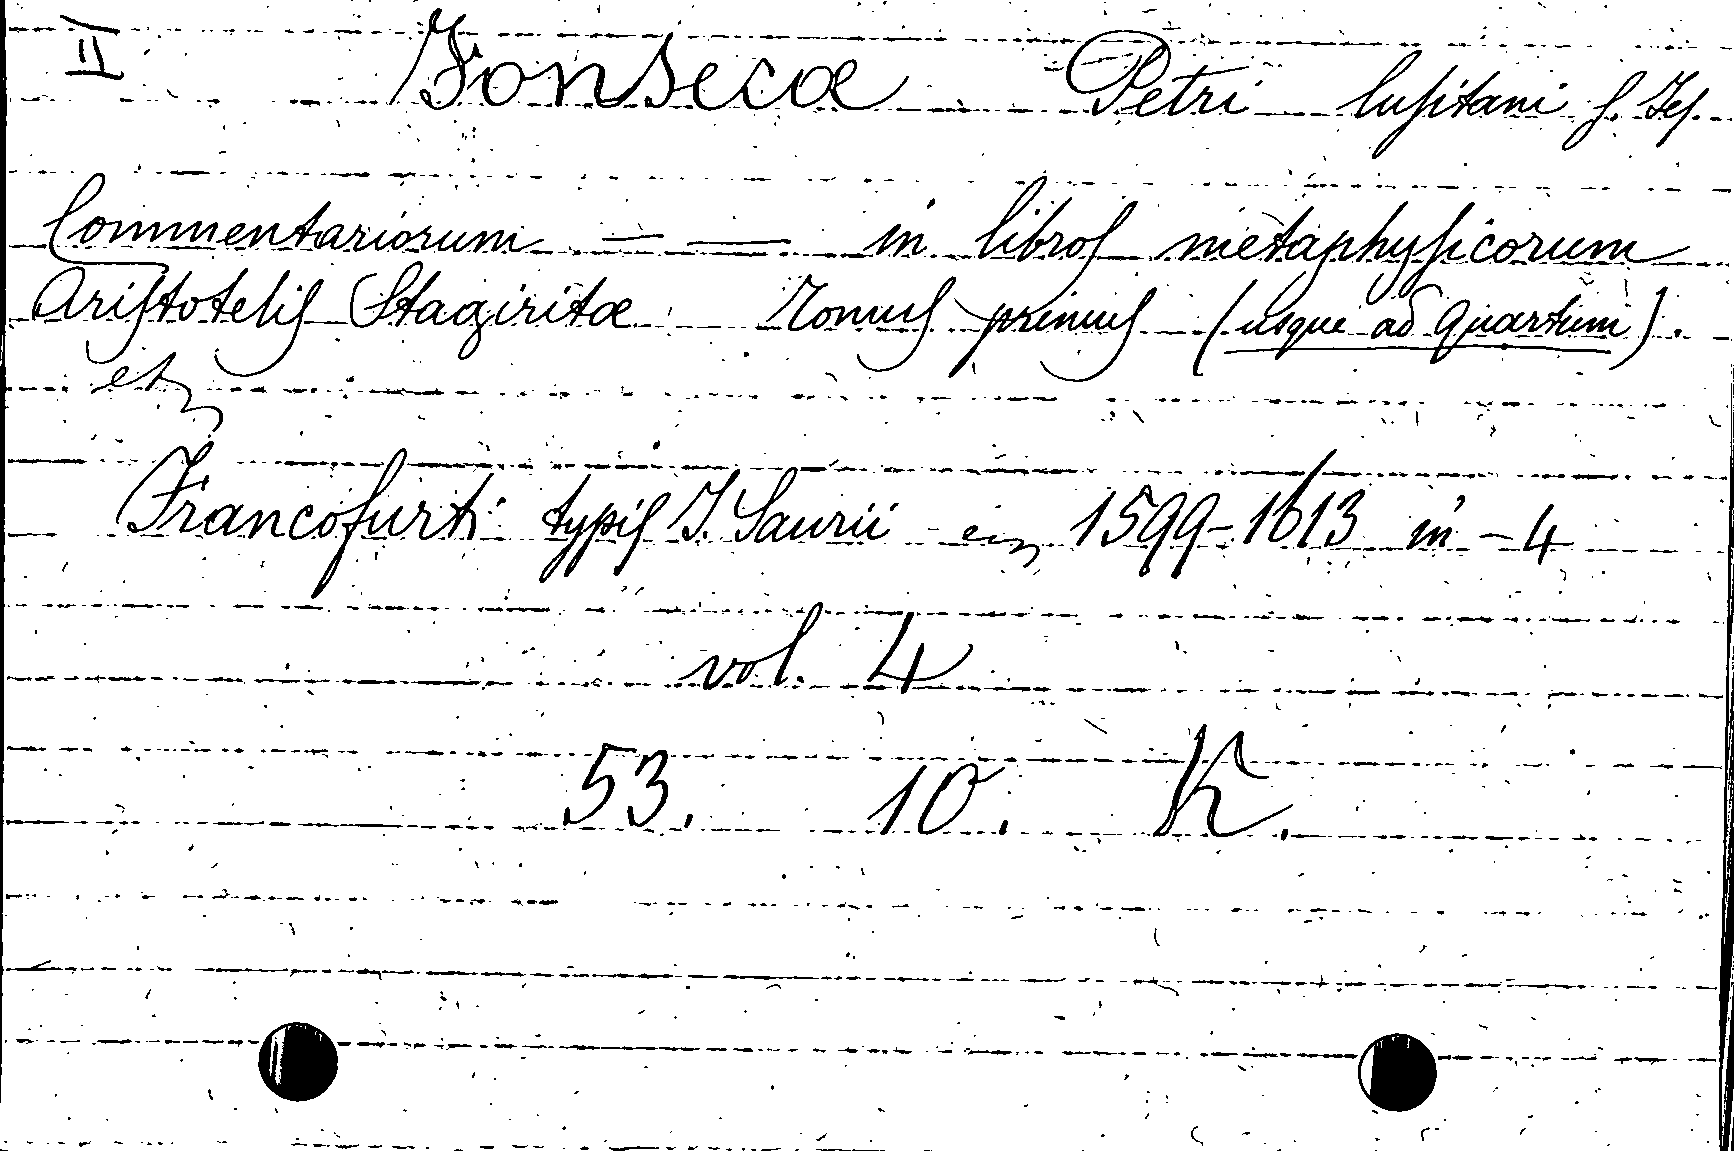 II Fonsecæ Petri lusitani S. Jes.
Commentariorum — — in libros metaphysicorum
Aristotelis Stagiritæ Tomus primus (usque ad quartum).
etc
Francofurti typis J. Saurii 1599-1613 in-4
vol. 4
53. 10. K.